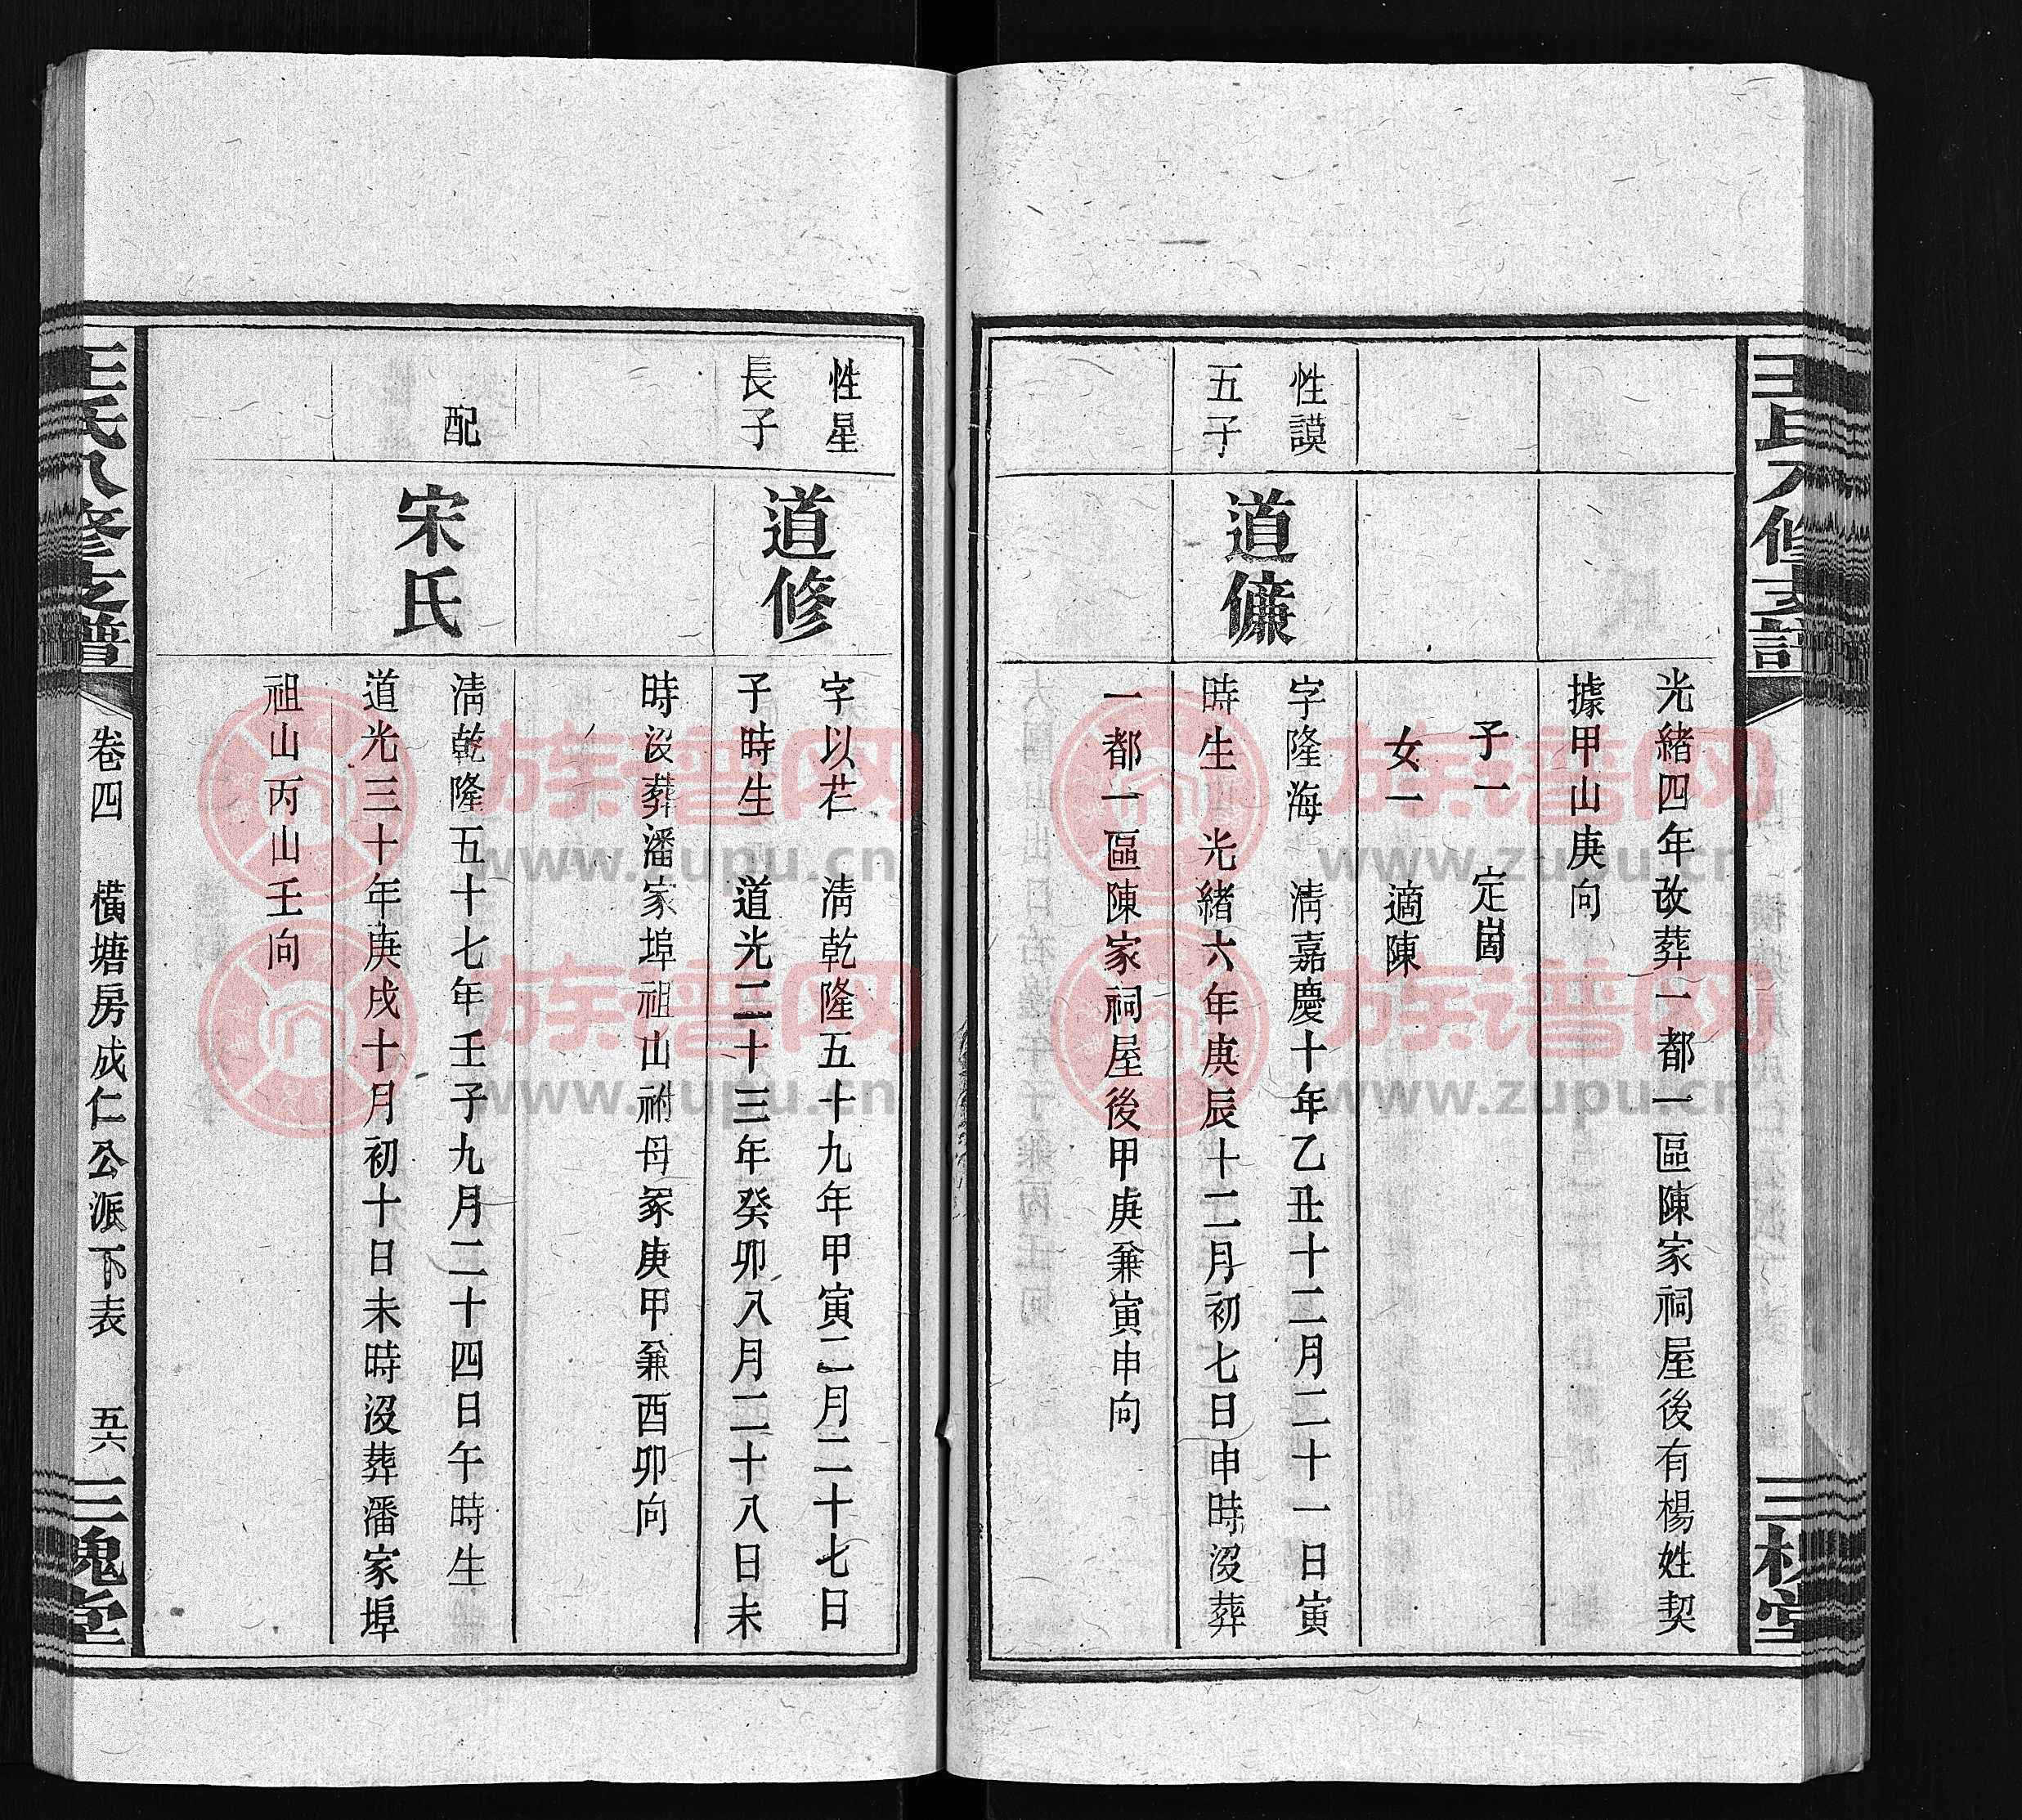 光緒四年改葬一都一區陳家祠屋後有楊姓契
據甲山庚向
子一　定崮
女一　適陳
性謨
五子
道㒕
字隆海　清嘉慶十年乙丑十二月二十一日寅
時生　光緒六年庚辰十二月初七日申時沒葬
一都一區陳家祠屋後甲庚兼寅申向
性星
長子
道修
字以芒　清乾隆五十九年甲寅二月二十七日
子時生　道光二十三年癸卯八月二十八日未
時沒葬潘家埠祖山祔母冢庚甲兼酉卯向
配
宋氏
清乾隆五十七年壬子九月二十四日午時生
道光三十年庚戌十月初十日未時沒葬潘家埠
祖山丙山壬向
王氏八修支譜
卷四　橫塘房成仁公派下表　五六
三槐堂
族谱网
www.zupu.cn
族谱网
www.zupu.cn
族谱网
www.zupu.cn
族谱网
www.zupu.cn